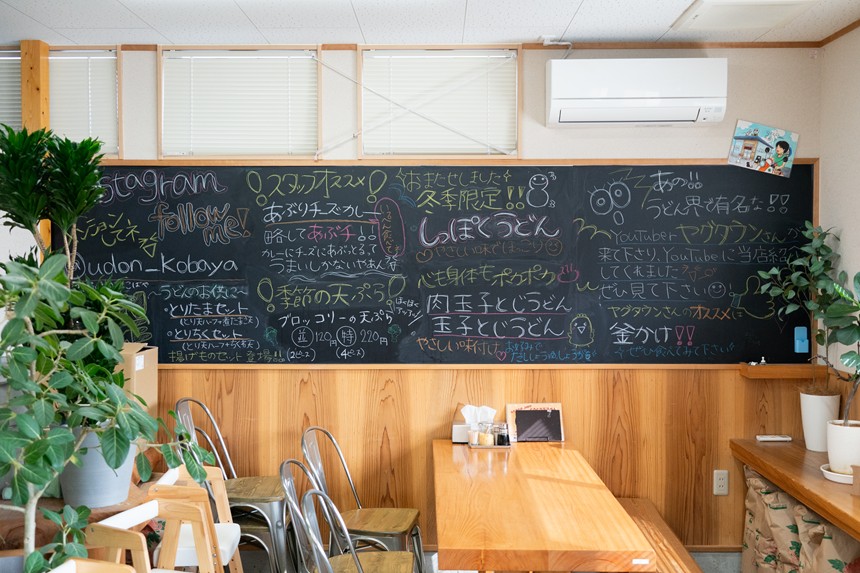 stagram
follow me!
してネ
@udon_kobaya
うどんのお供に
・とりたまセット
・とりちくセット
揚げものセット登場!!
!スタッフオススメ!
あぶりチーズカレー
略してあぶチ
カレーにチーズにあぶってるって
うまいしかないやぁん
!季節の天ぷら!
ブロッコリーの天ぷら
並120円 特220円
(2ピース) (4ピース)
おまたせしました
冬季限定!!
しっぽくうどん
やさしい味でほっこり
心も身体もポカポカ
肉玉子とじうどん
玉子とじうどん
やさしい味付け
あの!!
うどん界で有名な!!
YouTuber ヤグタウンさんが
来て下さり、YouTubeに当店紹介
してくれました
ぜひ見て下さい
ヤグタウンさんのオススメは
釜かけ!!
ぜひ食べてみて下さい